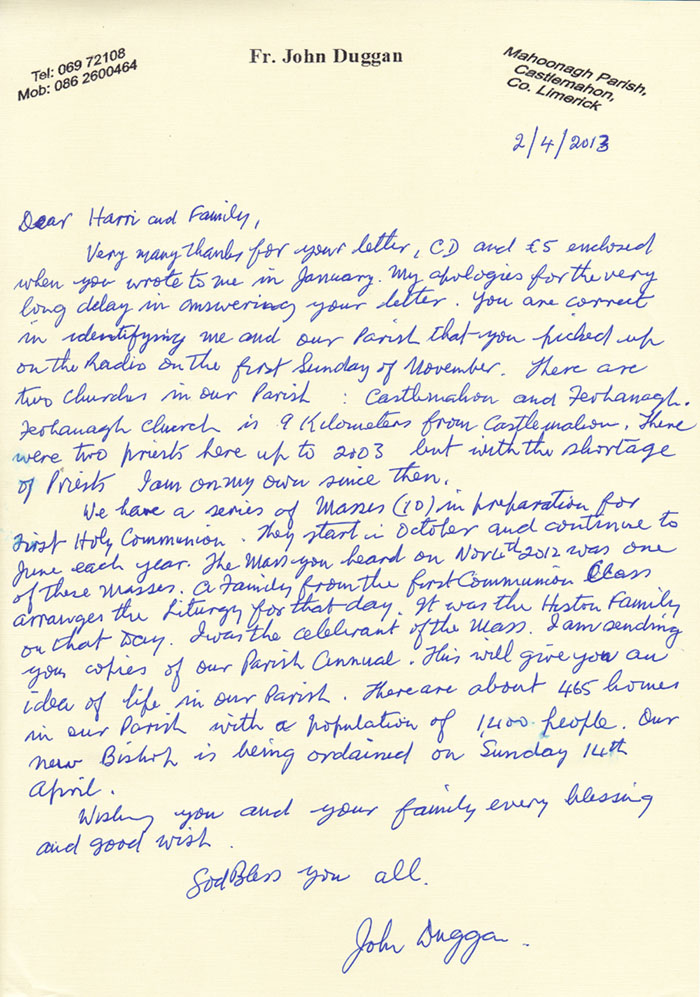 Tel: 069 72108
Mob: 086 2600464
Fr. John Duggan
Mahoonagh Parish,
Castlemahon,
Co. Limerick
2/4/2013
Dear Harri and Family,
Very many thanks for your letter, CD and €5 enclosed
when you wrote to me in January. My apologies for the very
long delay in answering your letter. You are correct
in identifying me and our Parish that you picked up
on the Radio on the first Sunday of November. There are
two churches in our Parish : Castlemahon and Feohanagh.
Feohanagh Church is 9 Kilometers from Castlemahon. There
were two priests here up to 2003 but with the shortage
of Priests I am on my own since then.
We have a series of Masses (10) in preparation for
First Holy Communion. They start in October and continue to
June each year. The Mass you heard on Nov 4th 2012 was one
of these Masses. A Family from the first Communion Class
arranges the Liturgy for that day. It was the Histon Family
on that Day. I was the celebrant of the Mass. I am sending
you copies of our Parish Annual. This will give you an
idea of life in our Parish. There are about 465 homes
in our Parish with a population of 1,400 people. Our
new Bishop is being ordained on Sunday 14th
April.
Wishing you and your family every blessing
and good wish.
God Bless you all.
John Duggan.